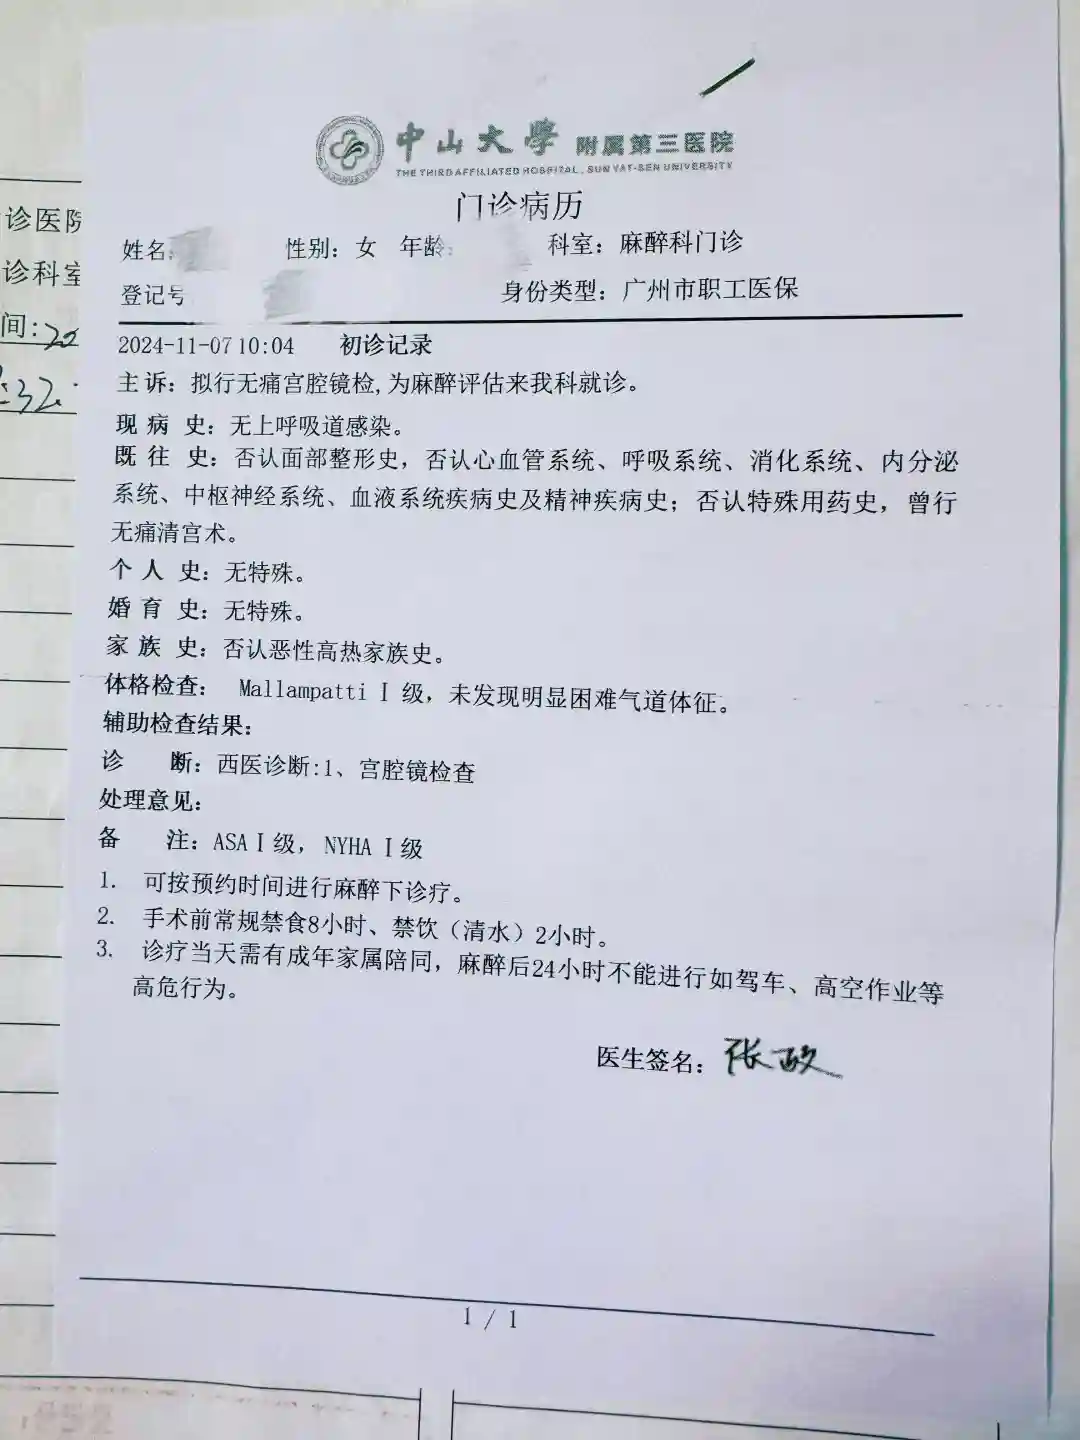 中山大学 附属第三医院
THE THIRD AFFILIATED HOSPITAL, SUN YAT-SEN UNIVERSITY
门诊病历
姓名: 性别: 女 年龄: 科室: 麻醉科门诊
登记号 身份类型: 广州市职工医保
2024-11-07 10:04 初诊记录
主诉: 拟行无痛宫腔镜检,为麻醉评估来我科就诊。
现 病 史: 无上呼吸道感染。
既 往 史: 否认面部整形史，否认心血管系统、呼吸系统、消化系统、内分泌
系统、中枢神经系统、血液系统疾病史及精神疾病史；否认特殊用药史，曾行
无痛清宫术。
个 人 史: 无特殊。
婚 育 史: 无特殊。
家 族 史: 否认恶性高热家族史。
体格检查: Mallampatti Ⅰ 级，未发现明显困难气道体征。
辅助检查结果:
诊 断: 西医诊断:1、宫腔镜检查
处理意见:
备 注: ASA Ⅰ 级, NYHA Ⅰ 级
1. 可按预约时间进行麻醉下诊疗。
2. 手术前常规禁食8小时、禁饮（清水）2小时。
3. 诊疗当天需有成年家属陪同，麻醉后24小时不能进行如驾车、高空作业等
高危行为。
医生签名: 张政
1 / 1
诊医院
诊科室
间:20
:32